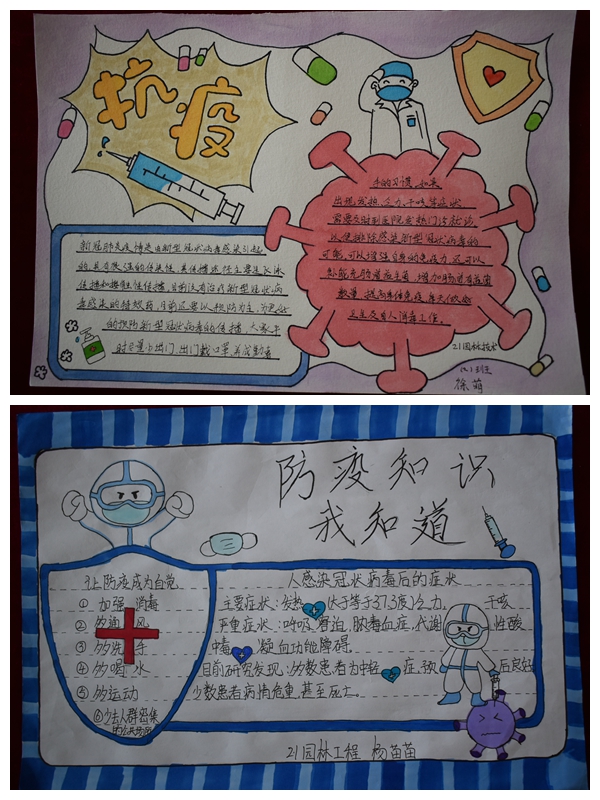 抗疫
新冠肺炎疫情是由新型冠状病毒感染引起
的,具有极强的传染性,其传播途径主要是飞沫
传播和接触性传播,目前没有治疗新型冠状病
毒感染的特效药,目前还要以预防为主,为更好
的预防新型冠状病毒的传播,大家平
时尽量少出门,出门戴口罩,养成勤
手的习惯,如果
出现发热、乏力、干咳等症状
需要及时到医院发热门诊就诊
以便排除感染新型冠状病毒的
可能,可以增强自身的免疫力,还可以
数量,提高身体免疫
21园林技术
徐萌
防疫知识
我知道
让防疫成为自觉
① 加强消毒
② 多通风
③ 多洗手
④ 多喝水
⑤ 多运动
⑥少去人群密集
的公共场所
人感染冠状病毒后的症状
主要症状:发热(大于等于37.3度)乏力、干咳
严重症状:呼吸窘迫、脓毒血症,代谢性酸
中毒、凝血功能障碍。
目前研究发现:多数患者为中轻症,预后良好
少数患者病情危重,甚至死亡。
21园林工程 杨苗苗